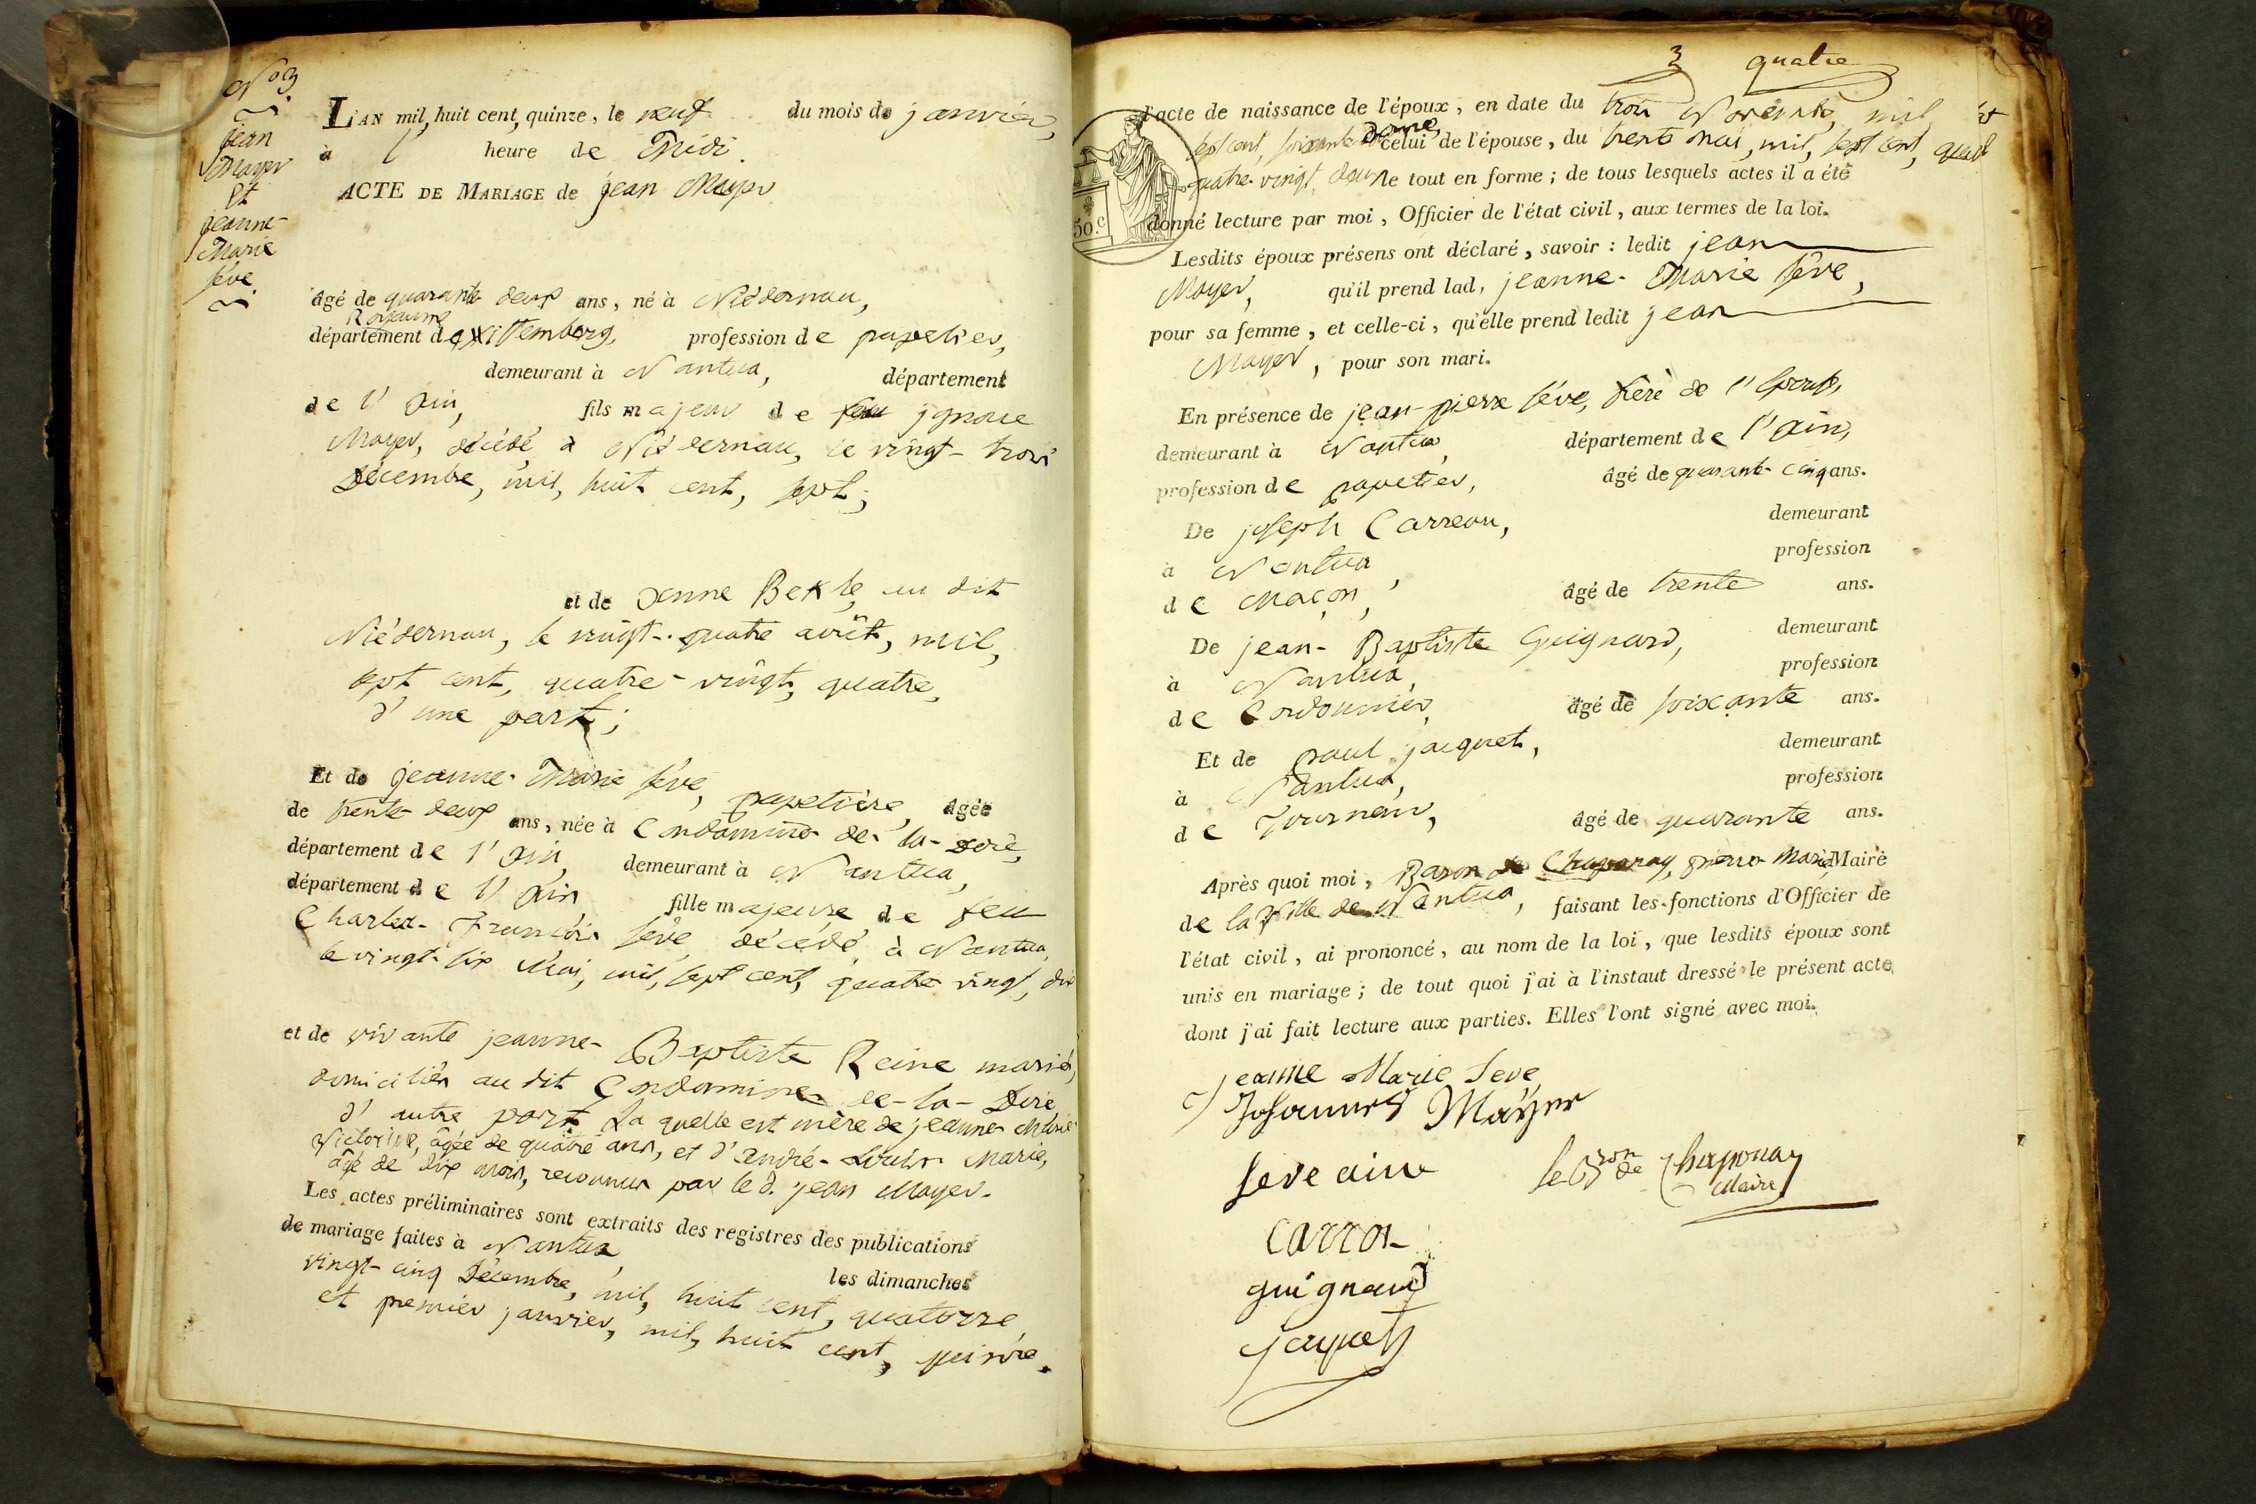 N° 3
jean
Mayer
Et
jeanne-
Marie
Séve
L'AN mil, huit cent, quinze, le neuf du mois de janvier,
à l' heure de Midi.
ACTE DE MARIAGE de jean Mayer
âgé de quarante deux ans, né à Niédernau,
Royaume
département de Wittemberg, profession de papetier,
demeurant à Nantua, département
de l'Ain, fils majeur de feu ignace
Mayer, décédé, à Niédernau, le vingt-trois
Décembre, mil, huit cent, sept;
et de Anne Bekle, au dit
Niédernau, le vingt-quatre août, mil,
sept cent, quatre-vingt, quatre,
d'une part;
Et de jeanne-Marie Séve, papetière, âgée
de trente deux ans, née à Condamine-de-la-Doie,
département de l'Ain, demeurant à Nantua,
département de l'Ain fille majeure de feu
Charles-François Séve, décédé, à Nantua,
le vingt-six Mai, mil, sept cent, quatre vingt, dix
et de vivante jeanne-Baptiste Reine mariés,
domiciliés au dit Condamine-de-la-Doie
d'autre part. La quelle est mère de jeanne Marie
Victorine, âgée de quatre ans, et d'andré-Louis-Marie,
âgé de dix mois, reconnus par le d. jean Mayer.
Les actes préliminaires sont extraits des registres des publications
de mariage faites à Nantua, les dimanches
vingt-cinq Décembre, mil, huit cent, quatorze,
et premier janvier, mil, huit cent, quinze.
3 quatre
l'acte de naissance de l'époux, en date du trois Novembre, mil et
sept cent, soixante douze, celui de l'épouse, du trente Mai, mil, sept cent,
quatre-vingt, deux le tout en forme; de tous lesquels actes il a été
donné lecture par moi, Officier de l'état civil, aux termes de la loi.
50.c
Lesdits époux présens ont déclaré, savoir: ledit jean
Mayer, qu'il prend lad. jeanne-Marie Séve,
pour sa femme, et celle-ci, qu'elle prend ledit jean
Mayer, pour son mari.
En présence de jean-pierre Séve, frère de l'Epouse,
demeurant à Nantua, département de l'Ain,
profession de papetier, âgé de quarante-cinq ans.
De joseph Carreau, demeurant
à Nantua, profession
de Maçon, âgé de trente ans.
De jean-Baptiste Guignard, demeurant
à Nantua, profession
de Cordonnier, âgé de soixante ans.
Et de paul jacquet, demeurant
à Nantua, profession
de Tourneur, âgé de quarante ans.
Après quoi moi, Baron de Chaponay, pierre-Marie, Maire
de la Ville de Nantua, faisant les fonctions d'Officier de
l'état civil, ai prononcé, au nom de la loi, que lesdits époux sont
unis en mariage; de tout quoi j'ai à l'instaut dressé le présent acte
dont j'ai fait lecture aux parties. Elles l'ont signé avec moi.
jeanne Marie Seve
Johannes Mayer
Seve ainé
le Bron de Chaponay
Maire
Carron
guignard
jacquet